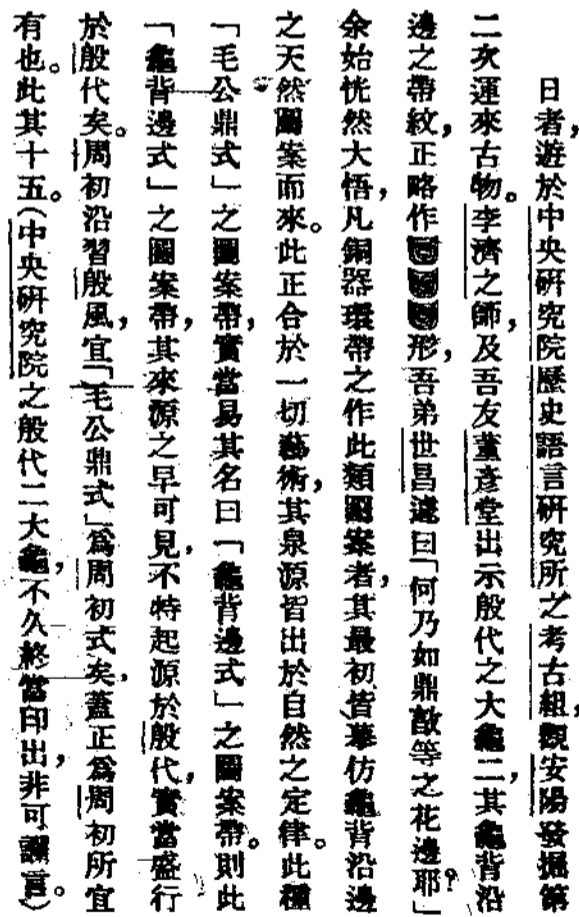 日者,遊於中央研究院歷史語言研究所之考古組,觀安陽發掘第
二次運來古物。李濟之師,及吾友董彥堂出示殷代之大龜二,其龜背沿
邊之帶紋,正略作形,吾弟世昌遽曰「何乃如鼎敦等之花邊耶?」
余始恍然大悟,凡銅器環帶之作此類圖案者,其最初皆摹仿龜背沿邊
之天然圖案而來。此正合於一切藝術,其泉源皆出於自然之定律。此種
「毛公鼎式」之圖案帶,實當易其名曰「龜背邊式」之圖案帶。則此
「龜背邊式」之圖案帶,其來源之早可見,不特起源於殷代,實當盛行
於殷代矣。周初沿習殷風,宜「毛公鼎式」為周初式矣,蓋正為周初所宜
有也。此其十五。(中央研究院之殷代二大龜,不久終當印出,非可讕言。)